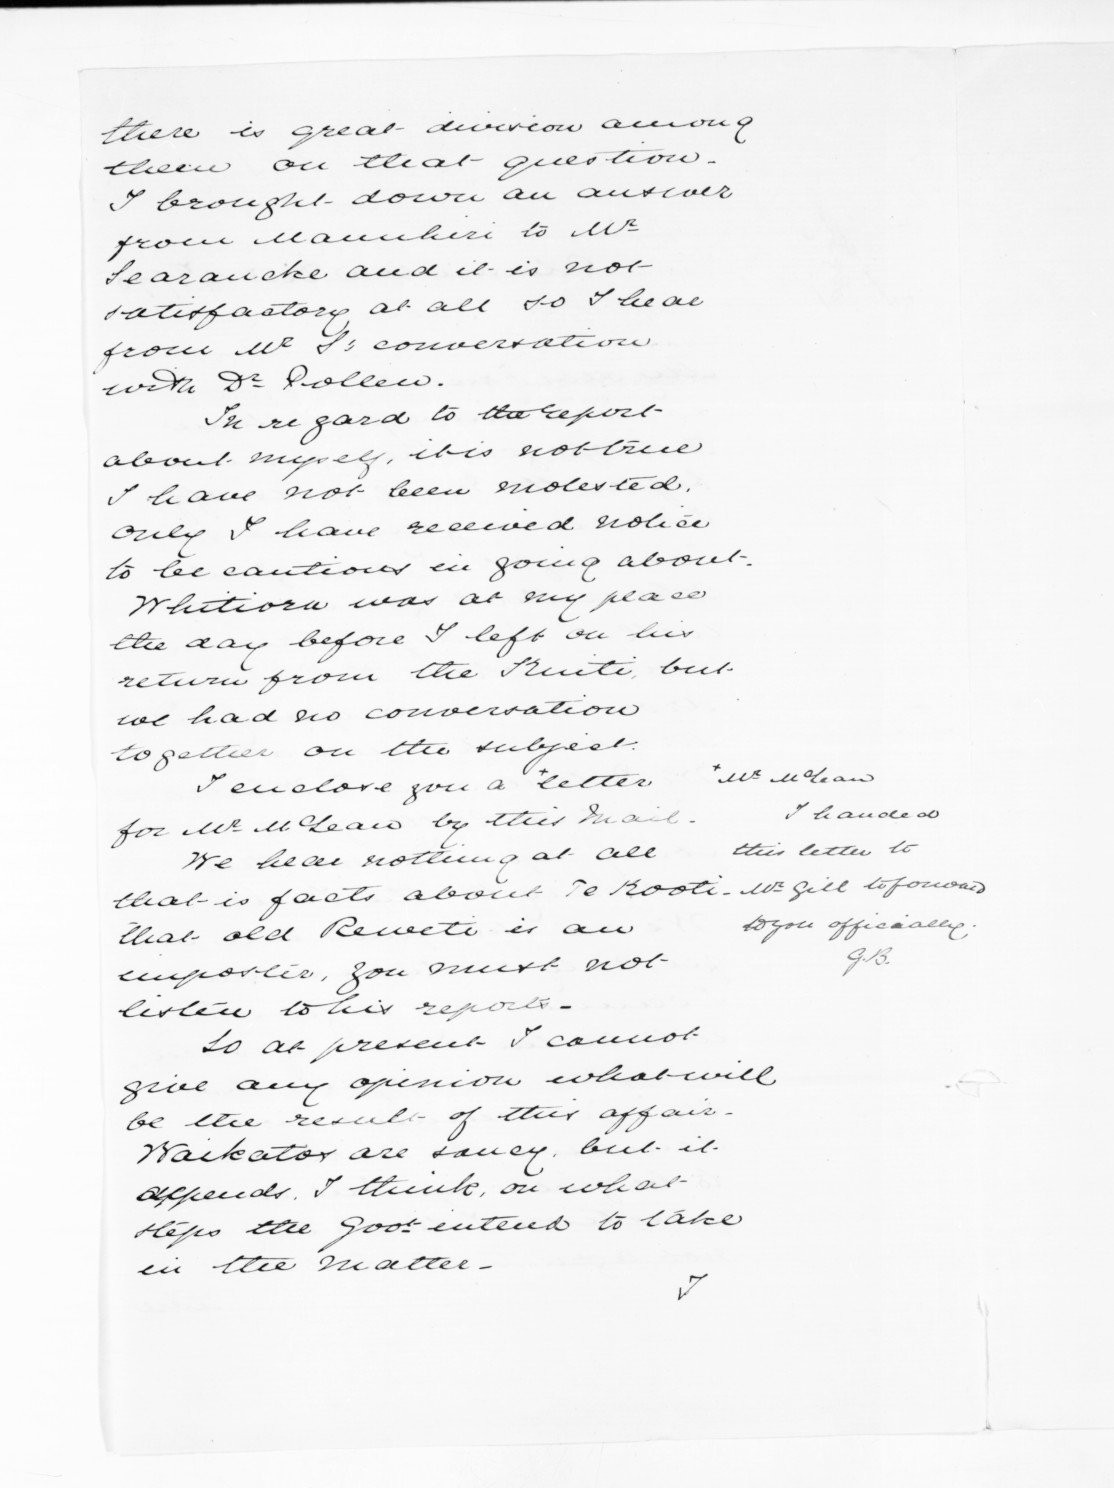 there is great division among
them on that question.
I brought down an answer
from Manuhiri to Mr
Searancke and it is not
satisfactory at all so I hear
from Mr Ss conversation
with Dr Pollen.
In regard to the report
about myself, it is not true
I have not been molested,
only I have received notice
to be cautious in going about.
Whitiora was at my place
the day before I left on his
return from the Kuiti, but
we had no conversation
together on the subject.
I enclose you a +letter
for Mr McLean by this Mail.
We hear nothing at all
that is facts about Te Kooti.
that old Reweti is an
imposter, you must not
listen to his reports.
So at present I cannot
give any opinion what will
be the result of this affair.
Waikatos are saucy, but it
depends, I think, on what
steps the Govt intend to take
in the matter.
I
+Mr McLean
I handed
this letter to
Mr Gill to forward
to you officially.
G.B.